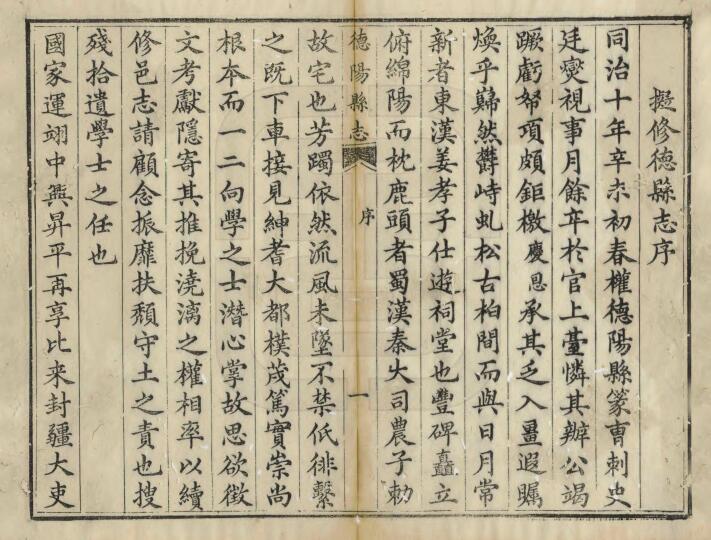 擬修德縣志序
同治十年辛未初春權德陽縣篆曹刺史
廷燮視事月餘卒於官上臺憐其辦公竭
蹶虧帑項頗鉅檄慶恩承其乏入畺遐矚
煥乎巋然欝峙虬松古柏間而與日月常
新者東漢姜孝子仕遊祠堂也豐碑矗立
俯綿陽而枕鹿頭者蜀漢秦大司農子勅
德陽縣志 序 一
故宅也芳躅依然流風未墜不禁低徘繫
之既下車接見紳耆大都樸茂篤實崇尚
根夲而一二向學之士潛心掌故思欲徵
文考獻隱寄其推挽澆漓之權相率以續
修邑志請顧念振靡扶頹守土之責也搜
殘拾遺學士之任也
國家運翊中興昇平再享比来封疆大吏